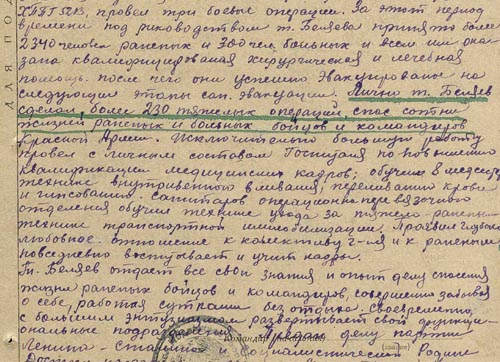 ХППГ 5213, провел три боевые операции. За этот период
времени под руководством т. Беляева принято более
2340 человек раненых и 300 чел. больных и всем им ока-
зана квалифицированая хирургическая и лечебная
помощь. после чего они успешно эвакуированы на
следующие этапы сан. эвакуации. Лично т. Беляев
сделал более 230 тяжелых операций, спас сотни
жизней раненых и больных бойцов и командиров
Красной Армии. Исключительно большую работу
провел с личным составом Госпиталя по повышению
квалификации медицинских кадров; обучил
технике внутривенного вливания, переливанию крови
и гипсования. Санитаров операционно перевязочного
отделения обучил технике ухода за тяжело ранеными
технике транспортной иммобилизации. Проявил глубоко
любовное отношение к колективу г-ля и к раненым
повседневно воспитывает и учит кадры.
Тов. Беляев отдает все свои знания и опыт делу спасения
жизни раненых бойцов и командиров, совершенно забывая
о себе, работая сутками без отдыха. Своевременно,
с большим энтузиазмом развертывает свои функци-
ональные подразделения. делу партии
Ленина-Сталина и социалистической Родине
Командир (начальник)
ДЛЯ ПОД